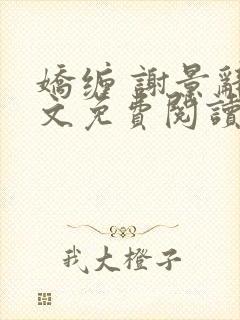 嬌缠 謝景辭
文免費閱讀
我大橙子